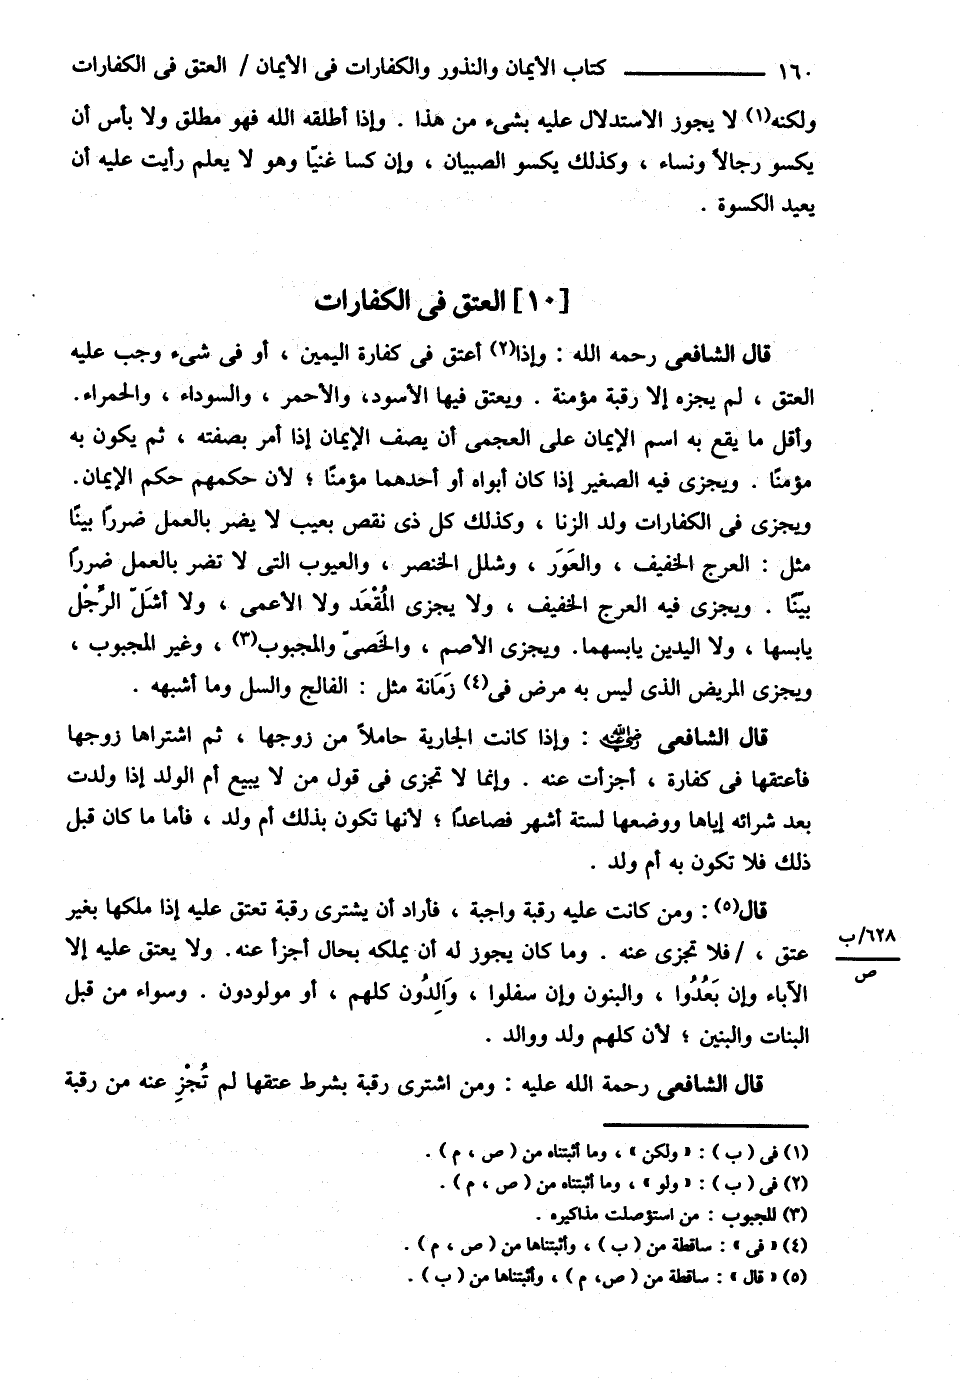 ١٦٠ ــــــــــــــ كتاب الأيمان والنذور والكفارات فى الأيمان / العتق فى الكفارات
ولكنه(١) لا يجوز الاستدلال عليه بشىء من هذا . وإذا أطلقه الله فهو مطلق ولا بأس أن
يكسو رجالاً ونساء ، وكذلك يكسو الصبيان ، وإن كسا غنيًا وهو لا يعلم رأيت عليه أن
يعيد الكسوة .
[١٠] العتق فى الكفارات
قال الشافعى رحمه الله : وإذا(٢) أعتق فى كفارة اليمين ، أو فى شىء وجب عليه
العتق ، لم يجزه إلا رقبة مؤمنة . ويعتق فيها الأسود، والأحمر ، والسوداء ، والحمراء.
وأقل ما يقع به اسم الإيمان على العجمى أن يصف الإيمان إذا أمر بصفته ، ثم يكون به
مؤمنًا . ويجزى فيه الصغير إذا كان أبواه أو أحدهما مؤمنًا ؛ لأن حكمهم حكم الإيمان.
ويجزى فى الكفارات ولد الزنا ، وكذلك كل ذى نقص بعيب لا يضر بالعمل ضررًا بينًا
مثل : العرج الخفيف ، والعَوَر ، وشلل الخنصر ، والعيوب التى لا تضر بالعمل ضررًا
بيّنًا . ويجزى فيه العرج الخفيف ، ولا يجزى المُقْعَد ولا الأعمى ، ولا أشَلّ الرِّجْل
يابسها ، ولا اليدين يابسهما. ويجزى الأصم ، والخَصىّ والمجبوب(٣) ، وغير المجبوب ،
ويجزى المريض الذى ليس به مرض فى(٤) زَمَانة مثل : الفالج والسل وما أشبهه .
قال الشافعى رضي الله عنه : وإذا كانت الجارية حاملاً من زوجها ، ثم اشتراها زوجها
فأعتقها فى كفارة ، أجزأت عنه . وإنما لا تجزى فى قول من لا يبيع أم الولد إذا ولدت
بعد شرائه إياها ووضعها لستة أشهر فصاعدًا ؛ لأنها تكون بذلك أم ولد ، فأما ما كان قبل
ذلك فلا تكون به أم ولد .
قال(٥) : ومن كانت عليه رقبة واجبة ، فأراد أن يشترى رقبة تعتق عليه إذا ملكها بغير
عتق ، / فلا تجزى عنه . وما كان يجوز له أن يملكه بحال أجزأ عنه. ولا يعتق عليه إلا
٦٢٨/ب
ص
الآباء وإن بَعُدُوا ، والبنون وإن سفلوا ، وَالِدُون كلهم ، أو مولودون . وسواء من قبل
البنات والبنين ؛ لأن كلهم ولد ووالد .
قال الشافعى رحمة الله عليه : ومن اشترى رقبة بشرط عتقها لم تُجْزِ عنه من رقبة
(١) فى ( ب ) : « ولكن » ، وما أثبتناه من ( ص ، م ) .
(٢) فى ( ب ) : « ولو » ، وما أثبتناه من ( ص ، م ) .
(٣) المجبوب : من استؤصلت مذاكيره .
(٤) « فى » : ساقطة من ( ب ) ، وأثبتناها من ( ص ، م ) .
(٥) « قال » : ساقطة من ( ص، م ) ، وأثبتناها من ( ب ) .